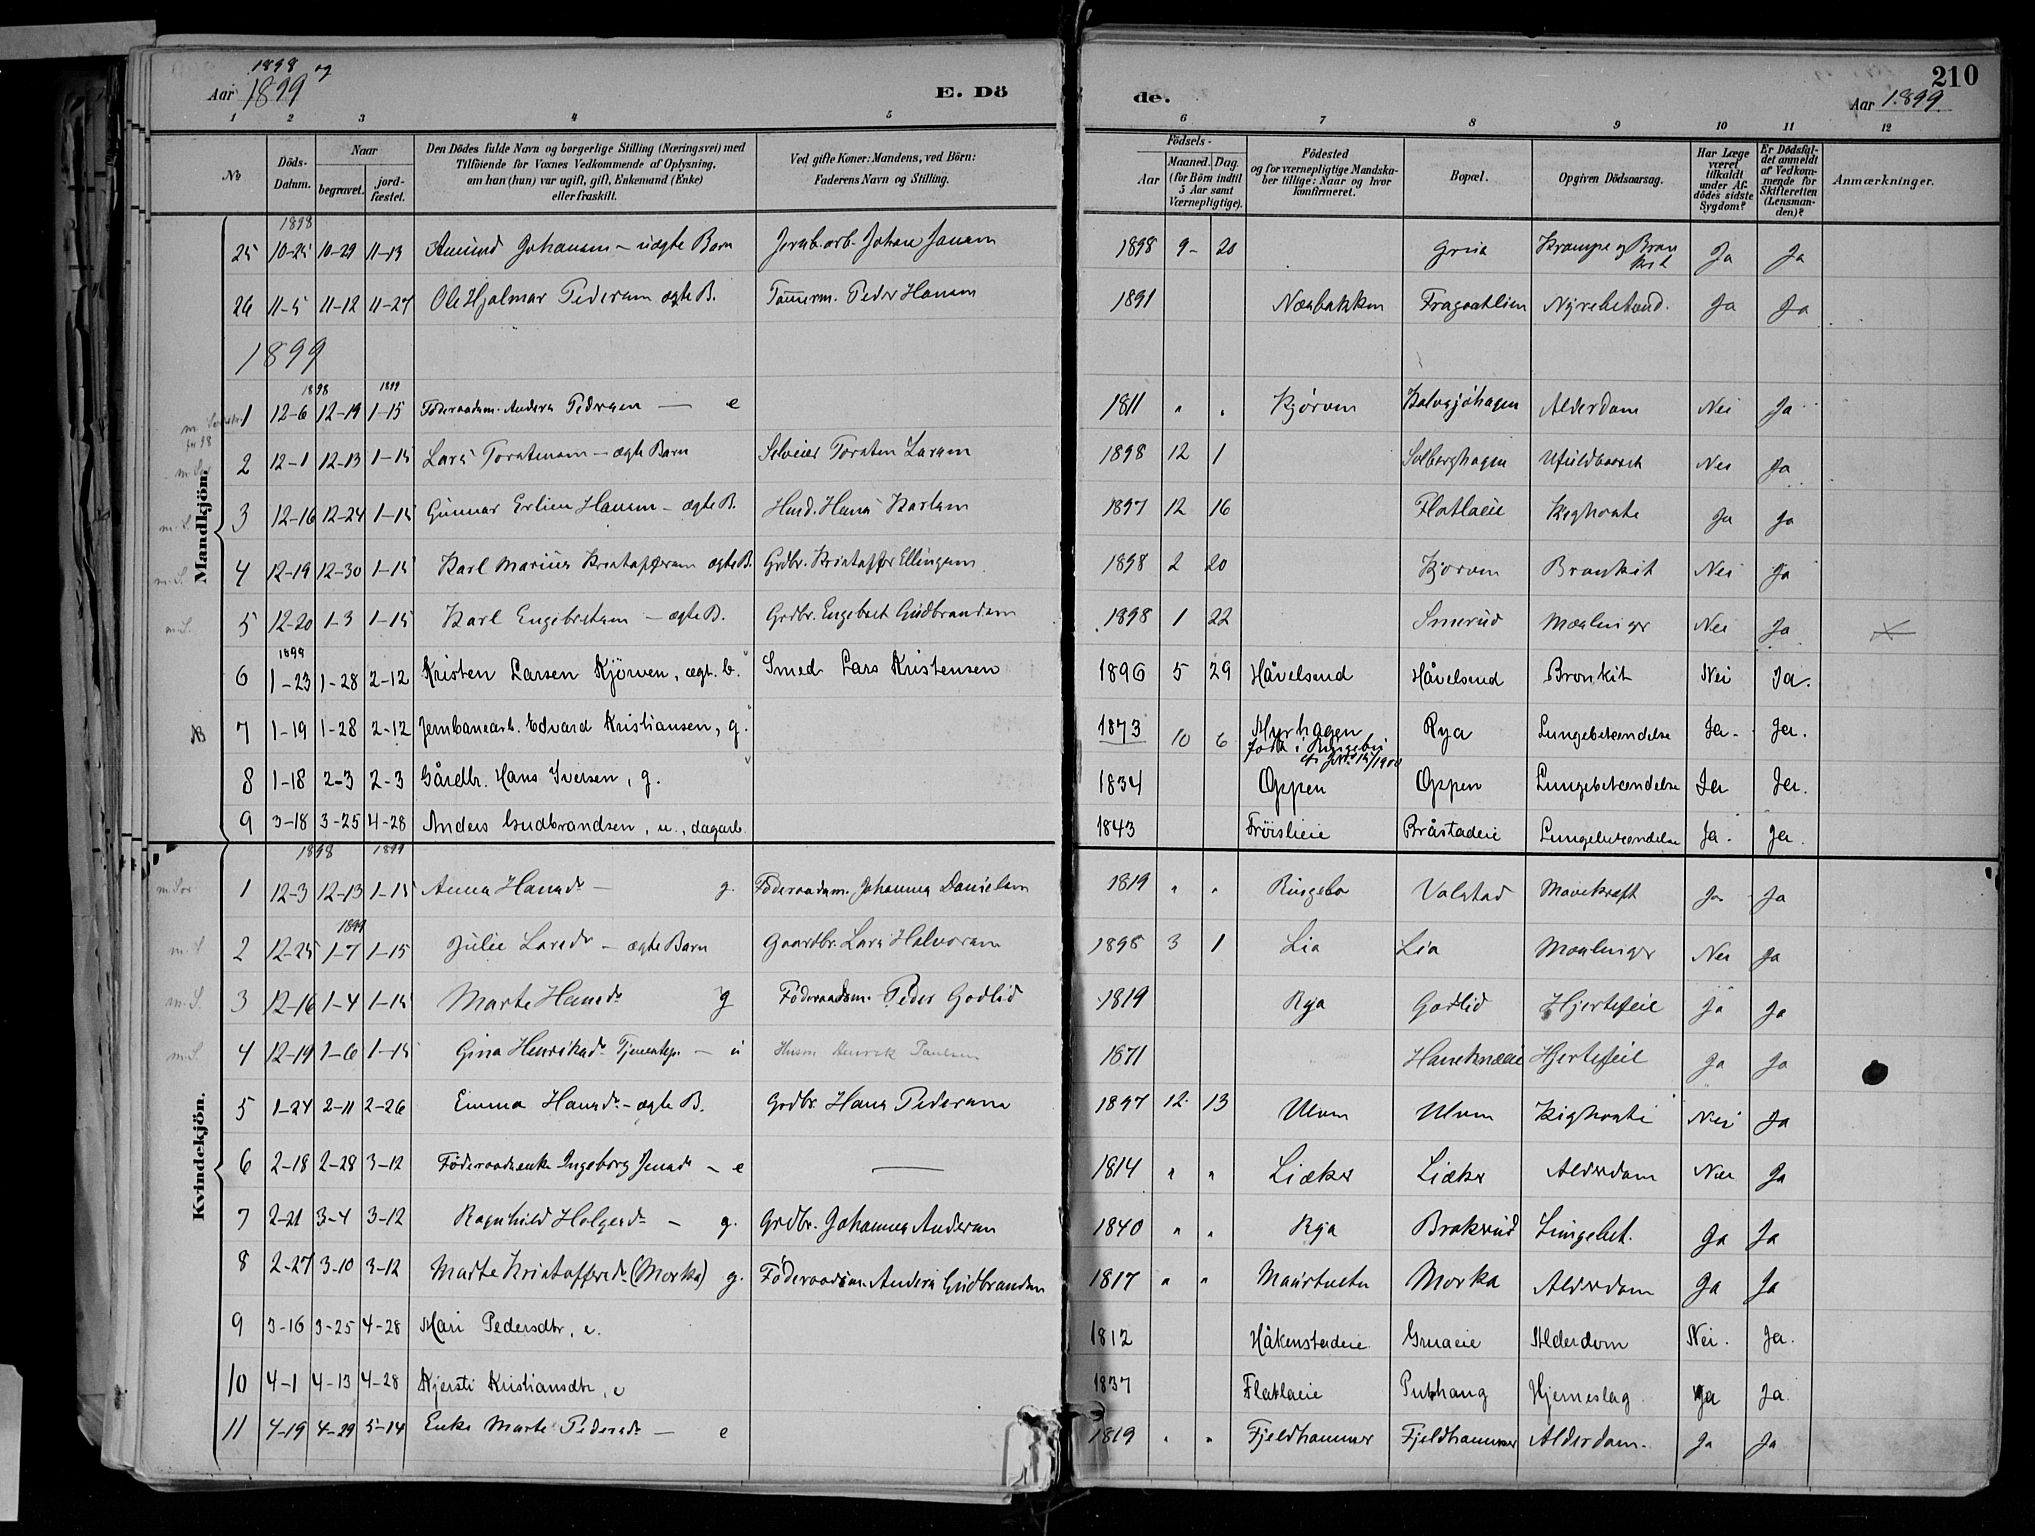 1898 og
Aar 1899
E. Dö
de.
210
Aar 1899.
1 2 3 4 5 6 7 8 9 10 11 12
No
Döds-Datum.
Naar
begravet.
jord-fæstet.
Den Dödes fulde Navn og borgerlige Stilling (Næringsvei) med
Tilföiende for Voxnes Vedkommende af Oplysning,
om han (hun) var ugift, gift, Enkemand (Enke)
eller fraskilt.
Ved gifte Koner: Mandens, ved Börn:
Faderens Navn og Stilling.
Födsels-
Aar
Maaned. Dag.
(for Börn indtil
5 Aar samt
Værnepligtige).
Födested
og for værnepligtige Mandska-
ber tillige: Naar og hvor
konfirmeret.
Bopæl.
Opgiven Dödsaarsag.
Har Læge
været
tilkaldt
under Af-
dödes sidste
Sygdom?
Er Dödsfal-
det anmeldt
af Vedkom-
mende for
Skifteretten
(Lensman-
den)?
Anmærkninger.
Mandkjön.
1898
25 10-25 10-29 11-13 Amund Johansen - uægte Barn Jernb.arb. Johan Jensen 1898 9- 20 Gria Krampe og Bronkit Ja Ja
26 11-5 11-12 11-27 Ole Hjalmar Pedersen ægte B. Tømmerm. Peder Hansen 1891 Næsbakken Nyrebetænd. Ja Ja
1899
1898 1899
1 12-6 12-19 1-15 Föderaadsm. Anders Pedersen — e 1811 " " Kjörven Kalvsjöhagen Alderdom Nei Ja
2 12-1 12-13 1-15 Lars Torstensen - ægte Barn Selveier Torsten Larsen 1898 12 1 Solberghagen Ufuldbaaret Nei Ja
3 12-16 12-24 1-15 Gunnar Erlien Hansen - ægte B. Husd. Hans Karlsen 1897 12 16 Flatlaeie Kighoste Ja Ja
4 12-19 12-30 1-15 Karl Marius Kristoffersen ægte B. Grdbr. Kristoffer Ellingsen 1898 2 20 Kjorven Bronkit Nei Ja
5 12-20 1-3 1-15 Karl Engebretsen - ægte B. Grdbr. Engebret Gudbrandsen 1898 1 22 Smerud Mæslinger Nei Ja
1899
6 1-23 1-28 2-12 Kristen Larsen Kjörven, ægt. b. Smed Lars Kristensen 1896 5 29 Håvelsrud Håvelsrud Bronkit Nei Ja.
7 1-19 1-28 2-12 Jernbanearb. Edvard Kristiansen, g. 1873 10 6 Myrhagen Rya Lungebetændelse Ja. Ja.
født i Ringebu
8 1-18 2-3 2-3 Gårdbr. Hans Iversen, g. 1834 Oppen Oppen Lungebetændelse Ja Ja.
9 3-18 3-25 4-28 Anders Gudbrandsen, u., dagarb. 1843 Fröislieie Bråstadeie Lungebetændelse Ja. Ja.
Kvindekjön.
1898 1899
1 12-3 12-13 1-15 Anna Hansdr - g. Föderaadsm. Johannes Danielsen 1819 " " Ringebo Volstad Mavekræft Ja Ja
1899
2 12-25 1-7 1-15 Julie Larsdr - ægte Barn Gaardbr. Lars Halvorsen 1898 3 1 Lia Lia Mæslinger Nei Ja
3 12-16 1-4 1-15 Marte Hansdr g Föderaadsm. Peder Godlid 1819 Rya Godlid Hjertefeil Ja Ja
4 12-19 1-6 1-15 Gina Henriksdr Tjenestep. - u Husm Henrik Paulsen 1871 Hjertefeil Ja Ja
5 1-24 2-11 2-26 Emma Hansdr - ægte B. Grdbr. Hans Pedersen 1897 12 13 Ulven Ulven Kighoste Nei Ja
6 2-18 2-28 3-12 Föderaadsenke Ingeborg Jensdr - e — 1814 " " Liæker Liæker Alderdom Nei Ja
7 2-21 3-4 3-12 Ragnhild Holgersdr - g. Grdbr. Johannes Andersen 1840 " " Rya Brokerud Lungebet. Ja Ja
8 2-27 3-10 3-12 Marte Kristoffersdr (Morka) g. Föderaadsm. Anders Gudbrandsen 1817 " " Maurtuetu Morka Alderdom Ja Ja
9 3-16 3-25 4-28 Mari Pedersdtr, e. 1812 Håkenstadeie Gruaeie Alderdom Nei. Ja.
10 4-1 4-13 4-28 Kjersti Kristiansdtr, e 1837 Flatlaeie Puthaug Hjerneslag Ja Ja.
11 4-19 4-29 5-14 Enke Marte Pedersdr - e 1819 " " Fjeldhammer Fjeldhammer Alderdom. Ja Ja